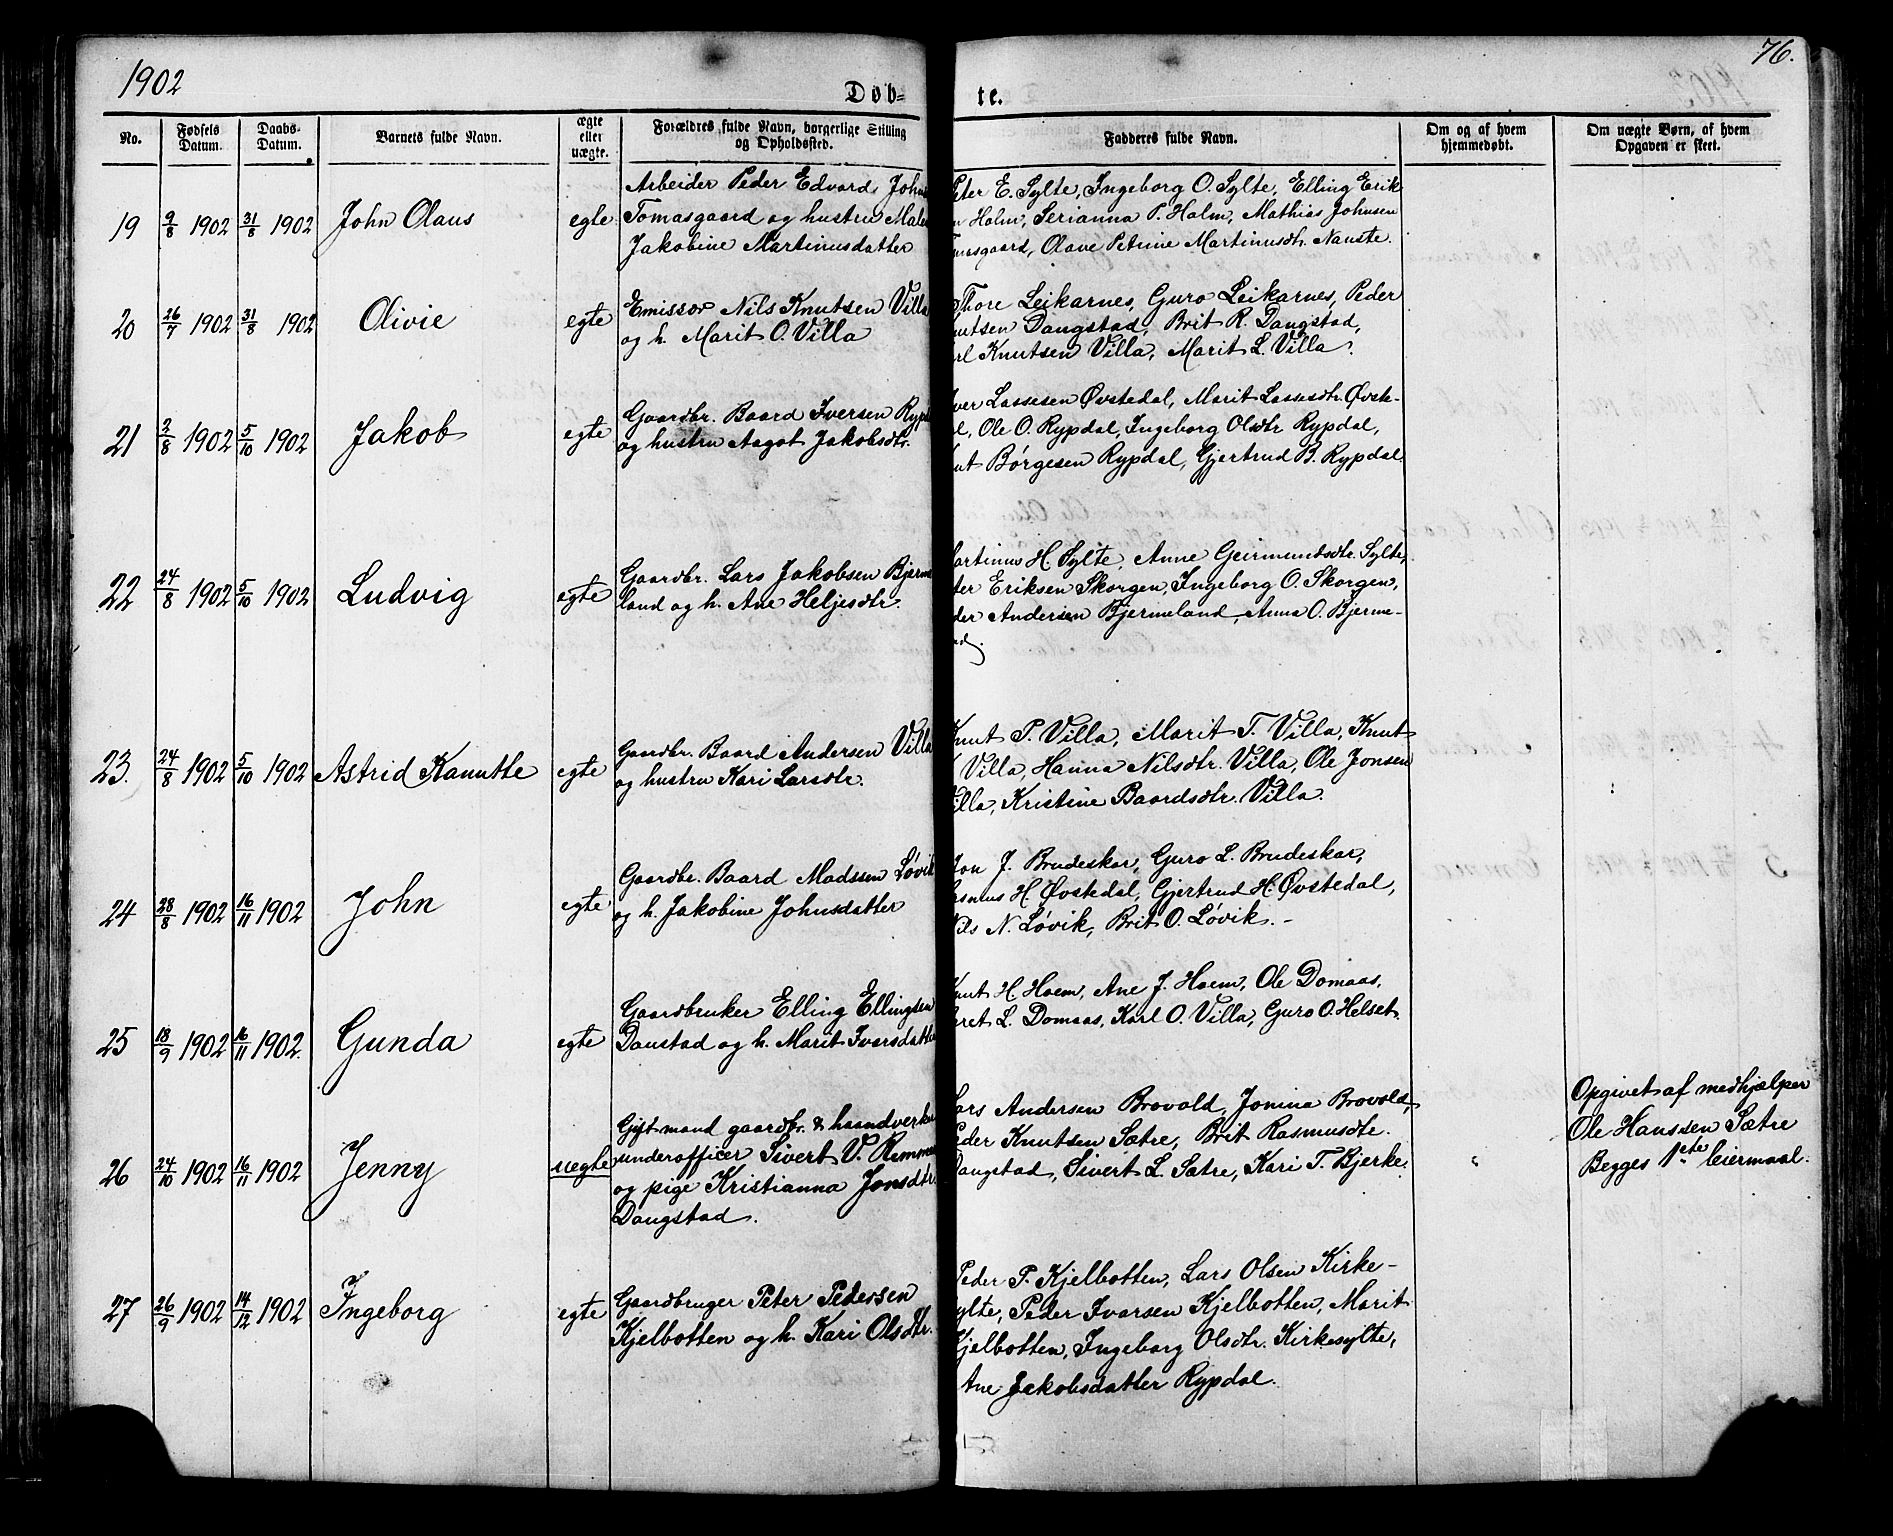 1902
76.
Døb=
te.
No.
Fødsels Datum.
Daabs-Datum.
Barnets fulde Navn.
ægte eller uægte.
Forældres fulde Navn, borgerlige Stilling og Opholdssted.
Fadderes fulde Navn.
Om og af hvem hjemmedøbt.
Om uægte Børn, af hvem Opgaven er skeet.
19 9/8 1902 31/8 1902 John Olaus egte
Arbeider Peder Edvard Johns
Tomasgaard og hustru Male
Jakobine Martinusdatter
Peter E. Sylte, Ingeborg O. Sylte, Elling Erik
n Holm, Serianna P. Holm, Mathias Johnsen
masgaard, Olave Petrine Martinusdtr. Nauste.
20 26/7 1902 31/8 1902 Olivie egte
Emissær Nils Knutsen Villa
og h. Marit O. Villa
Thore Leikarnes, Guro Leikarnes, Peder
nutsen Dangstad, Brit R. Dangstad,
rl Knutsen Villa, Marit L. Villa.
21 2/8 1902 5/10 1902 Jakob egte
Gaardbr. Baard Iversen Rypd
og hustru Aagot Jakobsdtr.
ver Lassesen Øvstedal, Marit Lassesdtr. Øvste-
l, Ole O. Rypdal, Ingeborg Olsdtr Rypdal,
ut Børgesen Rypdal, Gjertrud B. Rypdal.
22 24/8 1902 5/10 1902 Ludvig egte
Gaardbr. Lars Jakobsen Bjerme
land og h. Ane Heljesdtr.
artinus H Sylte, Anne Geirmundsdtr. Sylte,
ter Eriksen Skorgen, Ingeborg O. Skorgen,
der Andersen Bjermeland, Anna O. Bjerme-
nd.
23. 24/8 1902 5/10 1902 Astrid Kanutte egte
Gaardbr. Baard Andersen Villa
og hustru Kari Larsdtr.
Knut P. Villa, Marit T. Villa, Knut
Villa, Hanna Nilsdtr. Villa, Ole Jonsen
illa, Kristine Baardsdtr. Villa.
24 28/8 1902 16/11 1902 John egte
Gaardbr. Baard Madssen Løvik
og h. Jakobine Johnsdatter
Jon J. Brudeskar, Guro L. Brudeskar,
asmus H. Øvstedal, Gjertrud H. Øvstedal,
Nils N. Løvik, Brit O. Løvik. -
25 18/9 1902 16/11 1902. Gunda egte
Gaardbruker Elling Ellingsen
Daustad og h. Marit Ivarsdatter
Knut H. Hoem, Ane J. Hoem, Ole Domaas,
eret L. Domaas, Karl O. Villa, Guro O. Helset.
26 24/10 1902 16/11 1902 Jenny uegte
Gift mand gaardbr. & haandverker
underofficer Sivert V. Remmem
og pige Kristianna Jonsdtr.
Dangstad.
Lars Andersen Brovold, Jonina Brovold,
Peder Knutsen Sætre, Brit Rasmusdtr.
Dangstad, Sivert L. Sætre, Kari T. Bjerke.
Opgivet af medhjælper
Ole Hanssen Sætre
Begges 1ste leiermaal.
27 26/9 1902 14/12 1902 Ingeborg egte
Gaardbruger Peter Pedersen
Kjelbotten og h. Kari Olsdtr.
Peder P. Kjelbotten, Lars Olsen Kirke-
sylte, Peder Ivarsen Kjelbotten, Marit
Kjelbotten, Ingeborg Olsdtr. Kirkesylte,
Ane Jakobsdatter Rypdal.